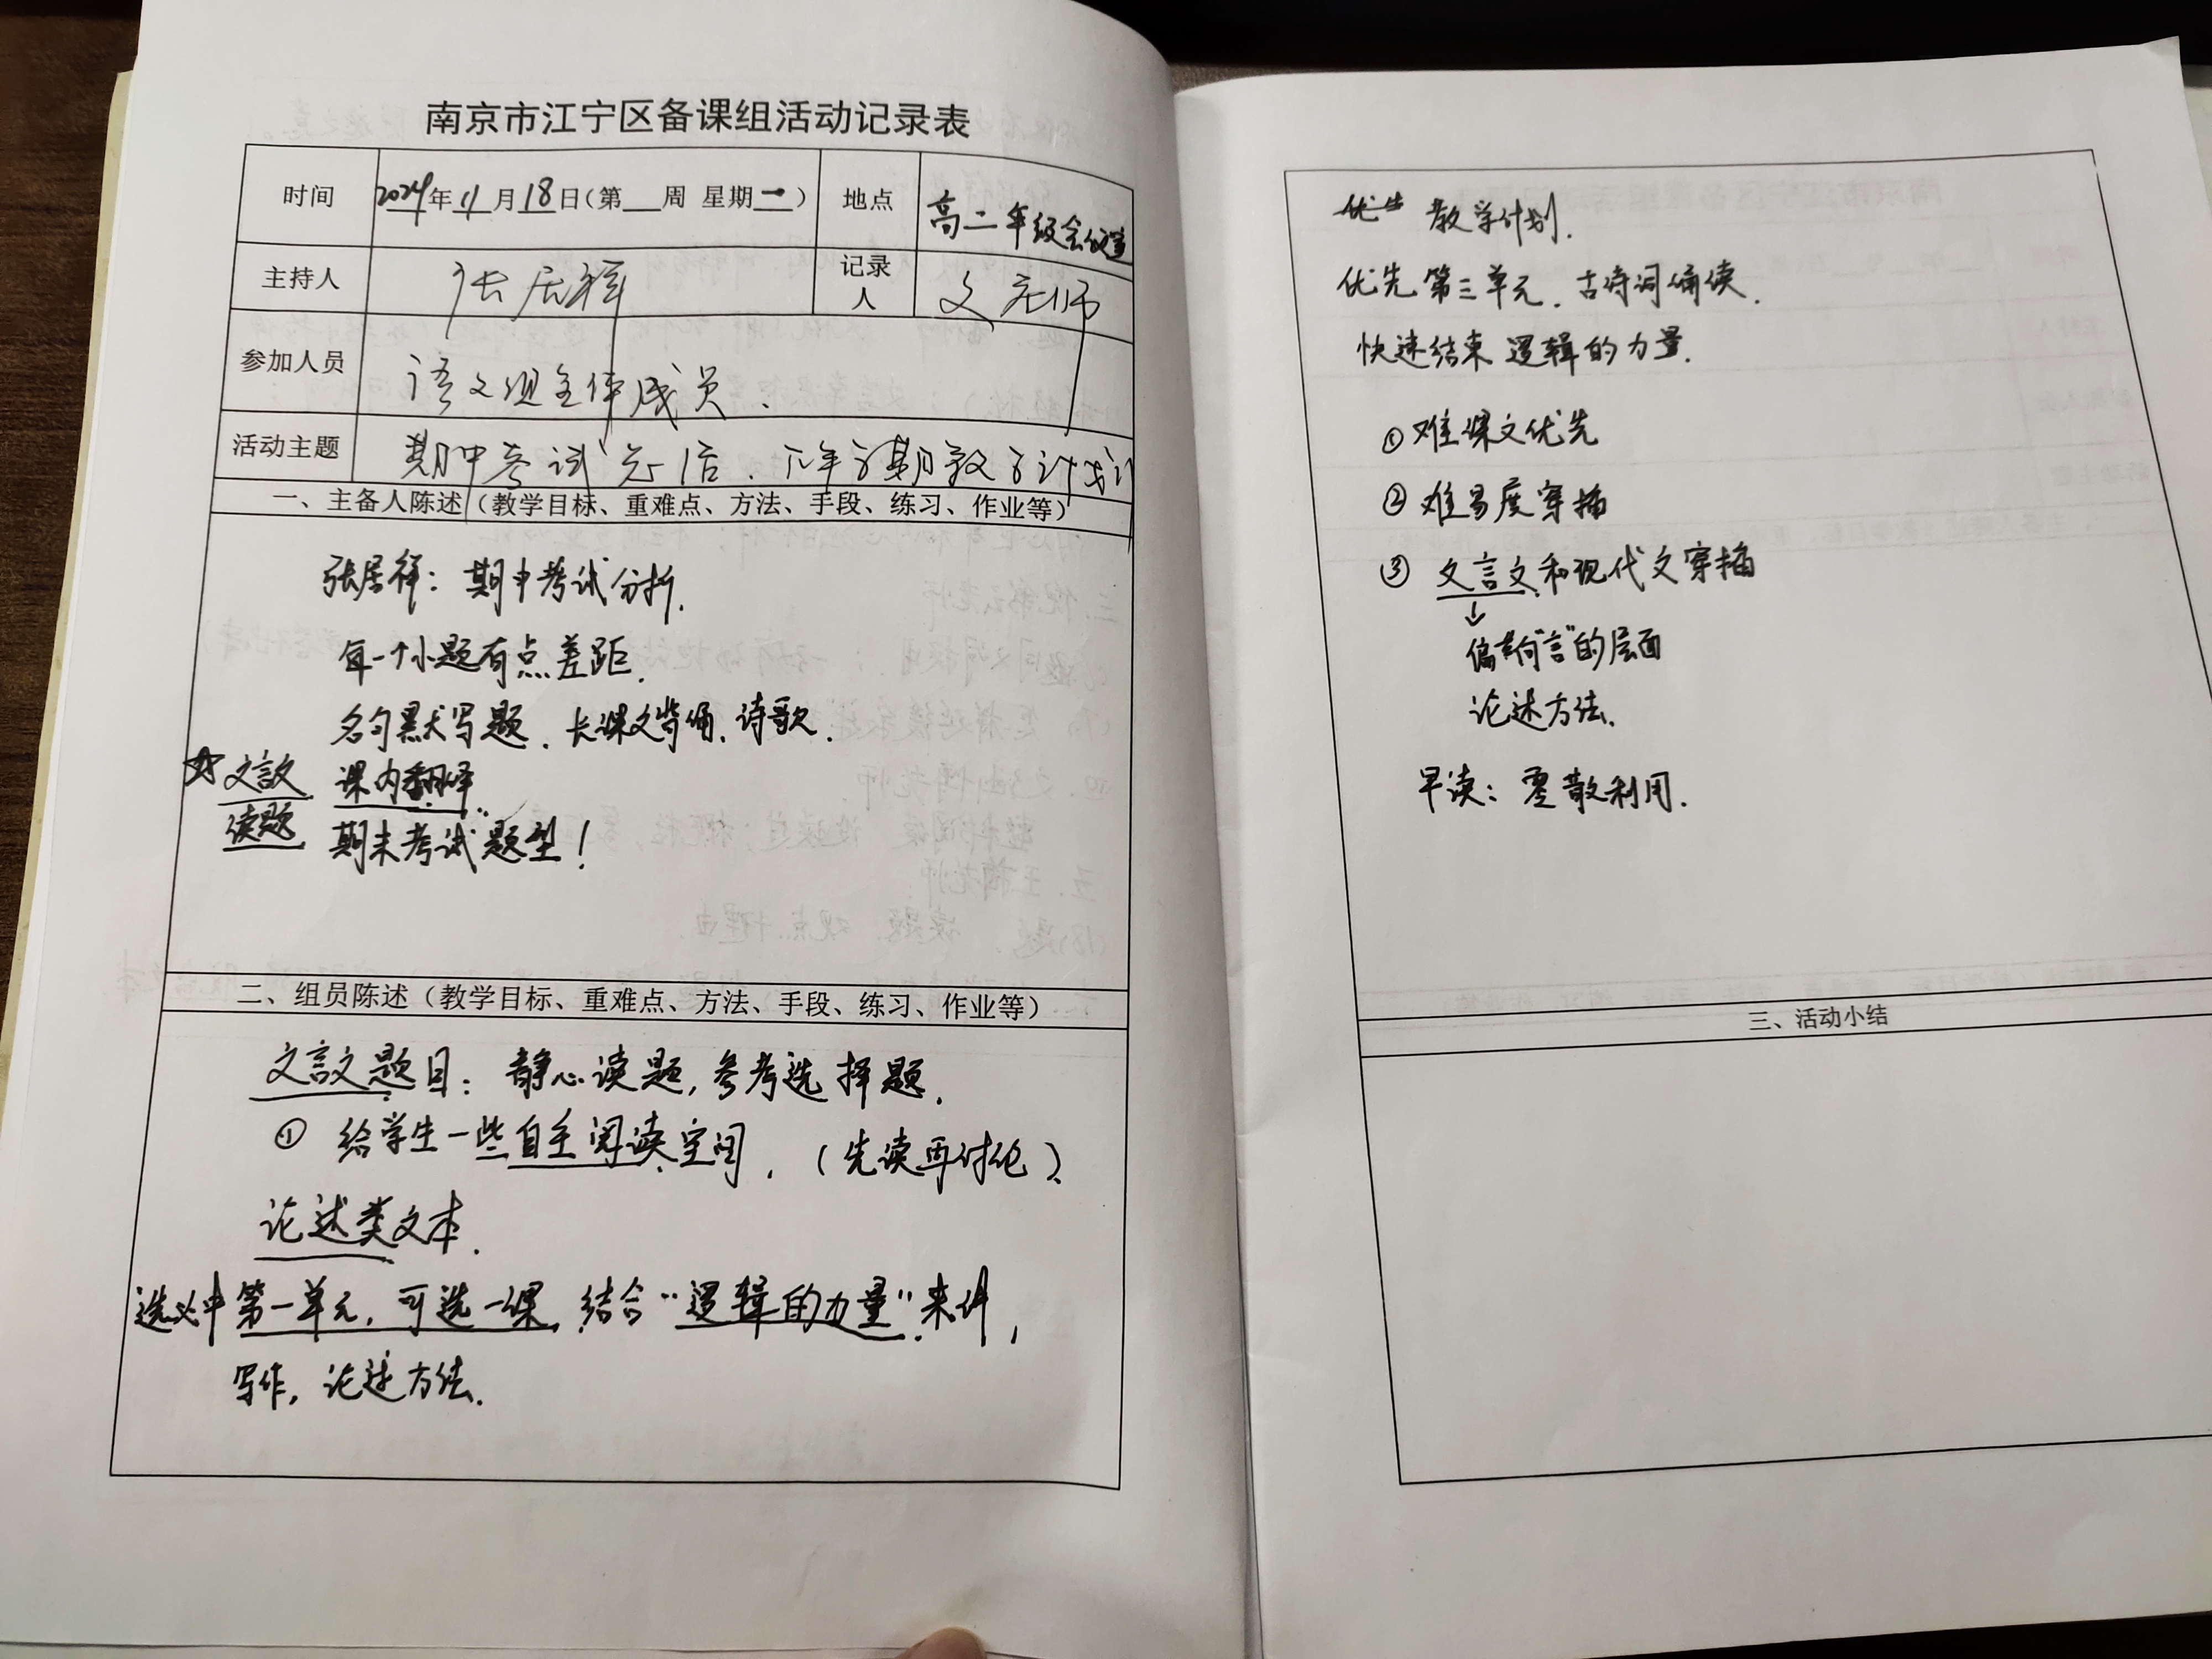 南京市江宁区备课组活动记录表
时间 2024年11月18日(第__周 星期一) 地点 高二年级会议室
主持人 张居祥 记录人
参加人员 语文组全体成员.
活动主题 期中考试总结、下半学期教学计划
一、主备人陈述(教学目标、重难点、方法、手段、练习、作业等)
张居祥: 期中考试分析.
每一个小题有点差距.
名句默写题、长课文背诵、诗歌.
☆文言文 课内翻译.
读题 期末考试题型!
二、组员陈述(教学目标、重难点、方法、手段、练习、作业等)
文言文题目: 静心读题,参考选择题.
① 给学生一些自主阅读空间.(先读再讨论)
论述类文本.
选必中第一单元,可选一课,结合“逻辑的力量”来讲,
写作,论述方法.
教学计划.
优先第三单元、古诗词诵读.
快速结束 逻辑的力量.
① 难课文优先
② 难易度穿插
③ 文言文和现代文穿插
↓
偏向“言”的层面
论述方法.
早读: 零散利用.
三、活动小结